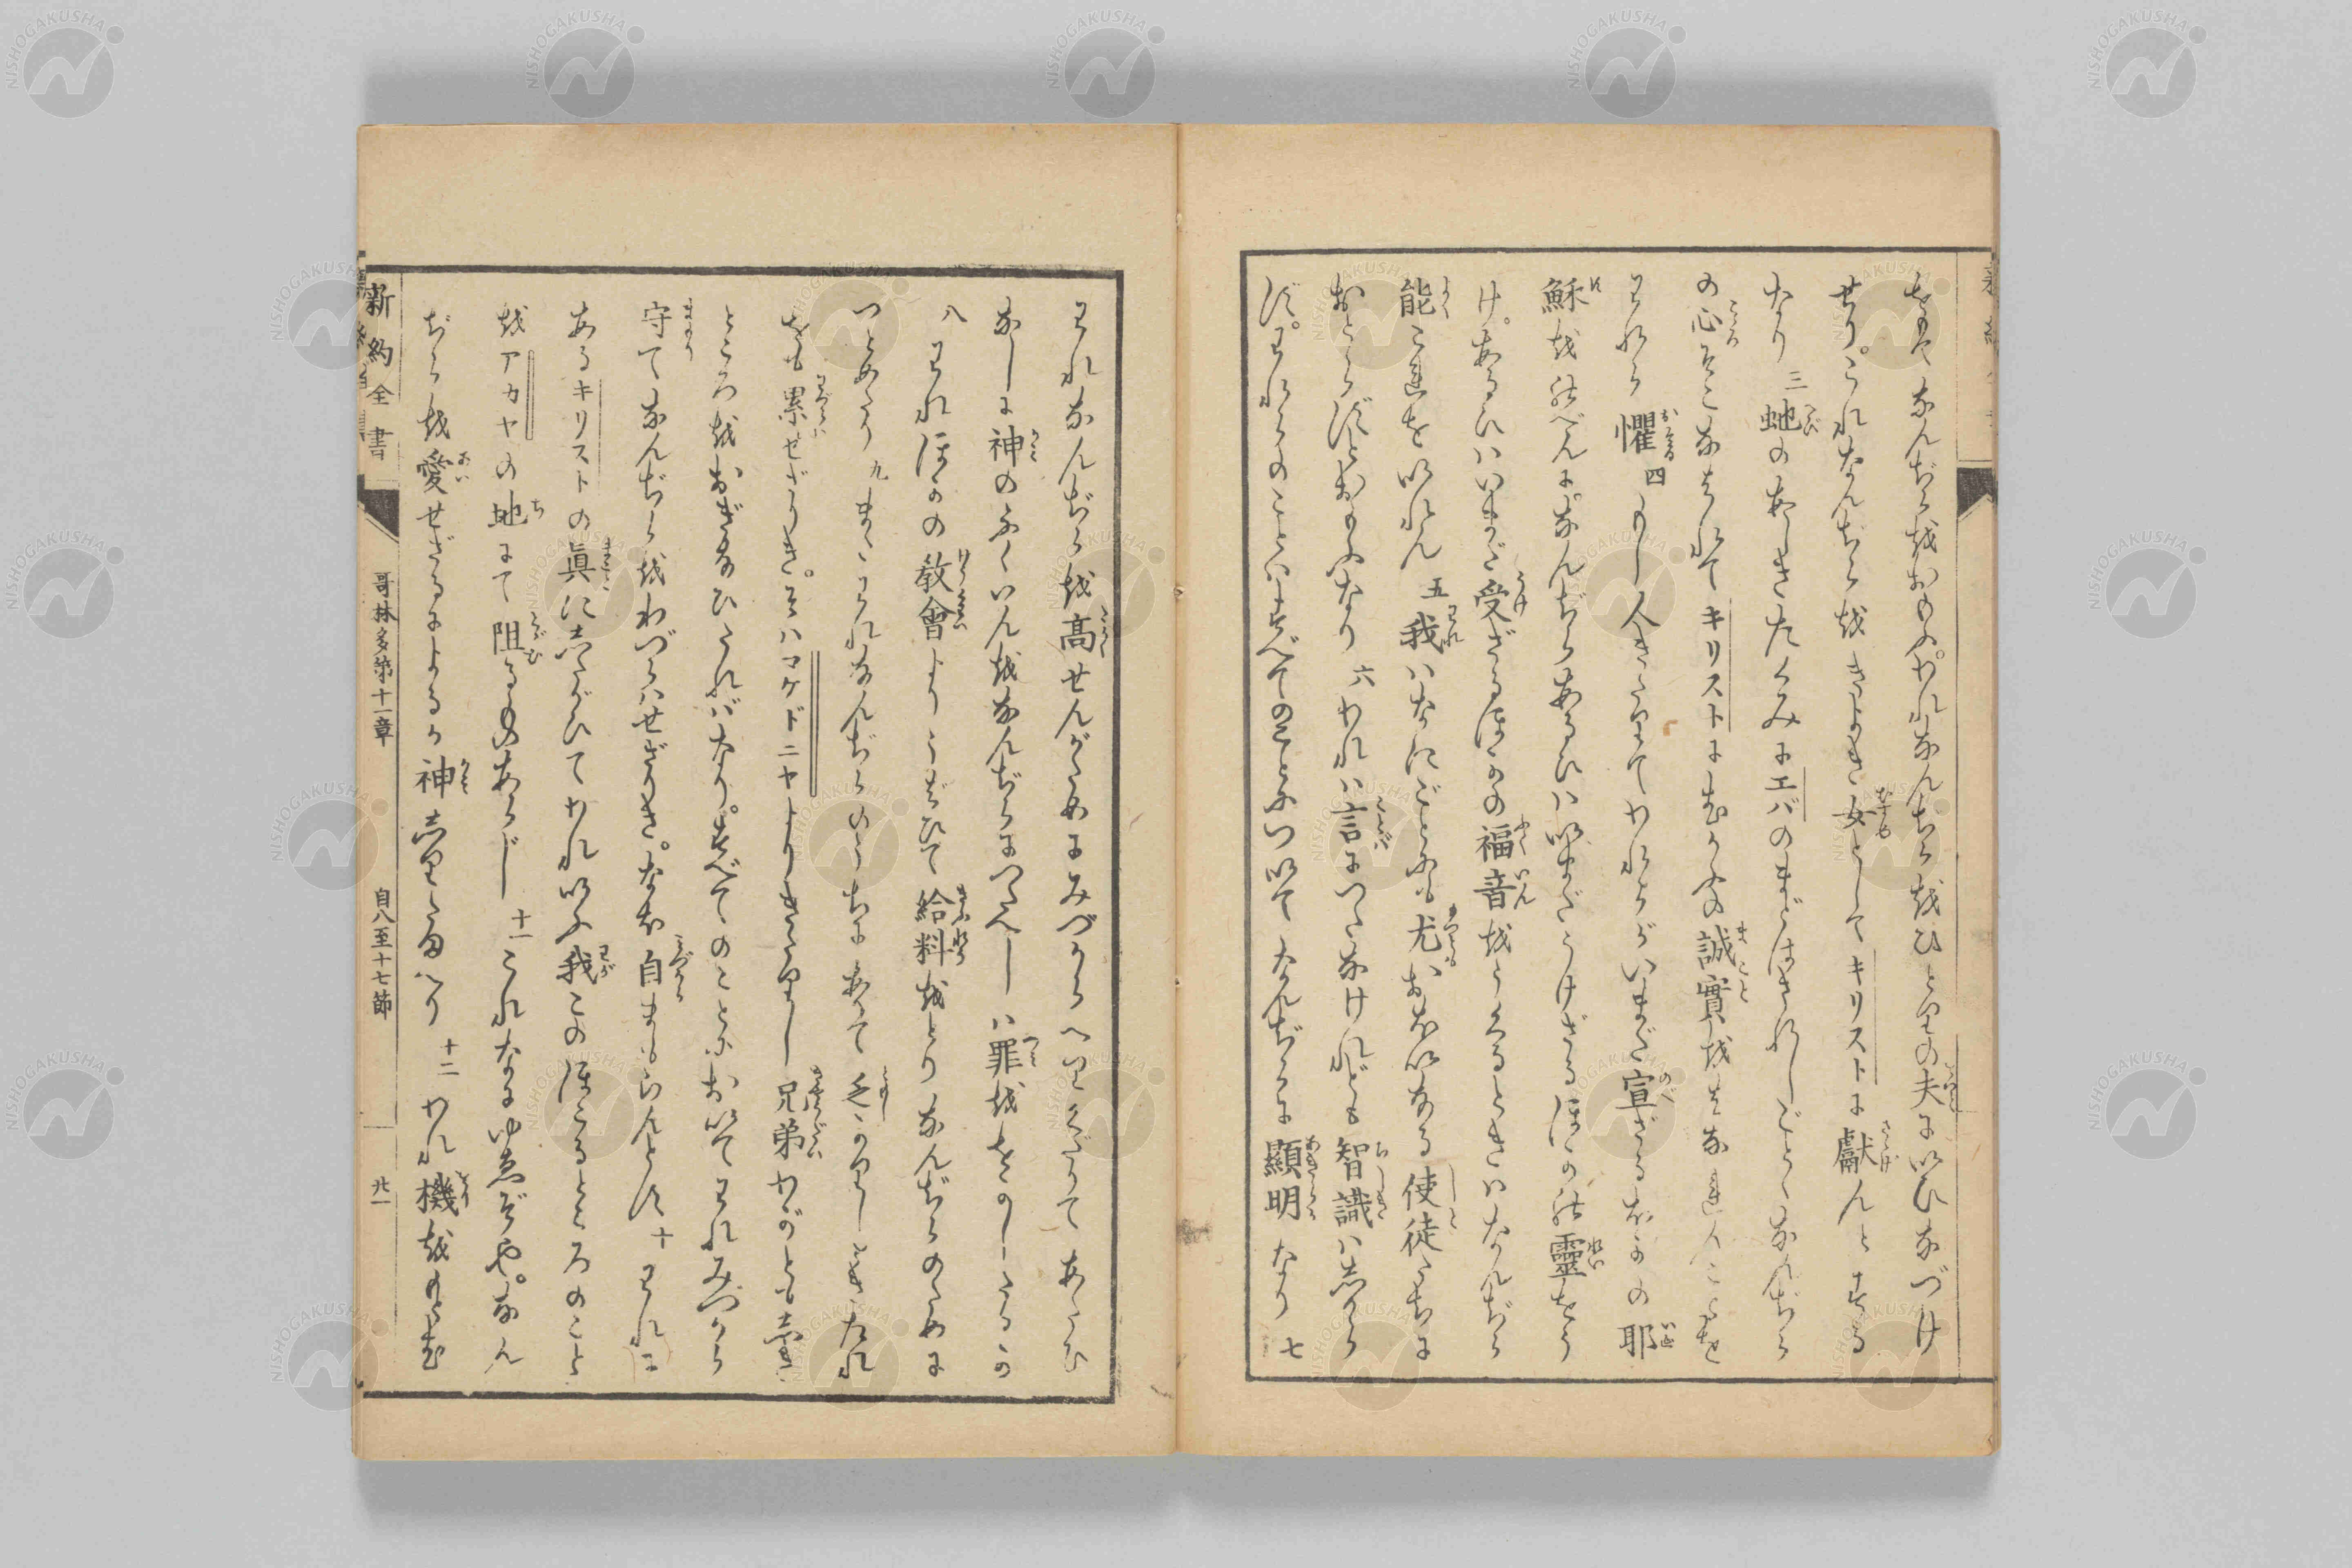 をもてなんぢらをおもふ。われなんぢらをひとりの夫にいひなづけ
せり。これなんぢらをきよき女としてキリストに獻んとする
なり 三 虵のあしきたくみにエバのまどはされしごとくなんぢら
の心そこなはれてキリストにむかふの誠實をはなれんことを
われら懼 四 もし人きたりてわれらがいまだ宣ざるほかの耶
穌をのべんに。なんぢらあるひはいまだうけざるほかの靈をう
け。あるひはいまだ受ざるほかの福音をうくるときはなんぢら
能これをいれん 五 我はなにごとにも尤おほいなる使徒たちに
おとらずとおもふなり 六 われは言につたなけれども智識はしから
ず。われらのことはすべてのことについてなんぢらに顯明なり 七
われなんぢらを高せんがためにみづからへりくだりてあたひ
なしに神のふくいんをなんぢらにつたへしは罪ををかししるか
八 われほかの教會よりうばひて給料をとりなんぢらのために
つとめたり 九 またわれなんぢらのうちにありて乏かりしときたれ
をも累せざりき。そはマケドニヤよりきたりし兄弟わがともしき
ところをおぎなひたればなり。すべてのことにおいてわれみづから
守てなんぢらをわづらはせざりき。なほ自まもらんとす 十 われに
あるキリストの眞にしたがひてわれいふ我このほこるところのこと
をアカヤの地にて阻るものあらじ 十一 これなにゆゑぞや。なん
ぢらを愛せざるによるか神しりたまへり 十二 われ機をもとむ
新約全書
哥林多第十一章
自八至十七節
廿一
NISHOGAKUSHA